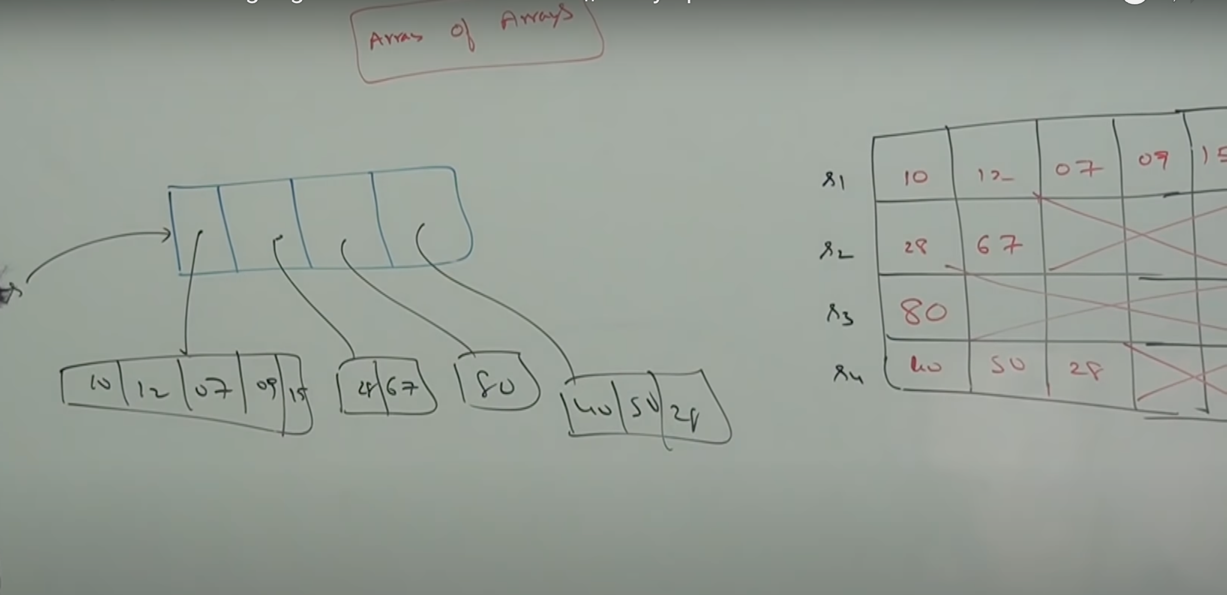 Array of Arrays
10 12 07 09 15
28 67
80
40 50 28
r1 10 12 07 09 15
r2 28 67
r3 80
r4 40 50 28